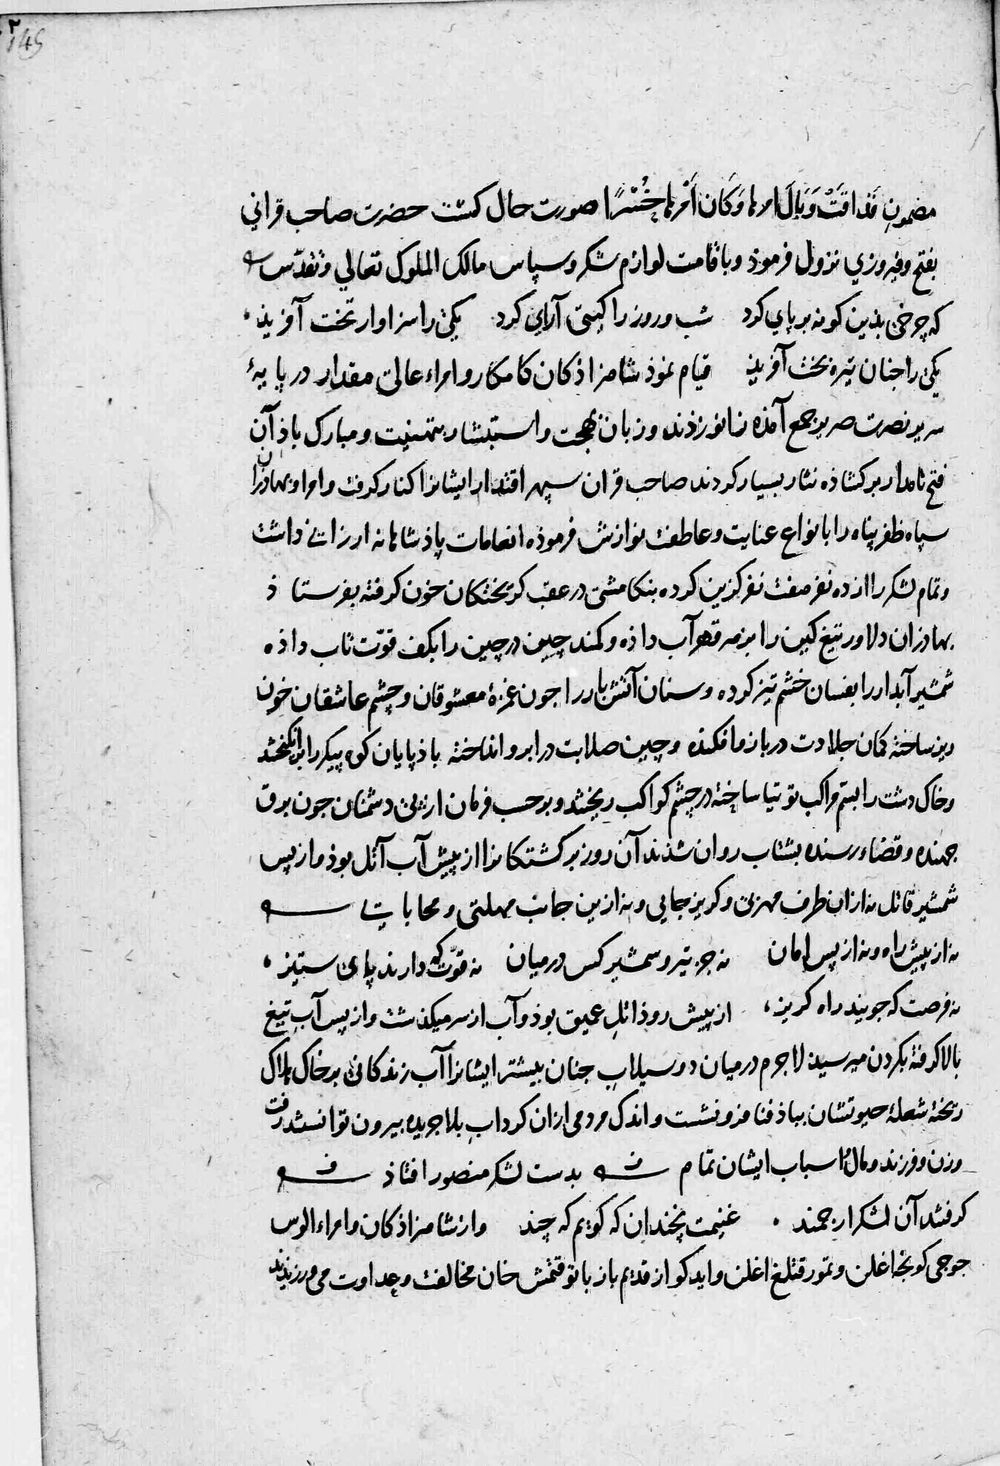 ۲
145
مضمون فَذاقَتْ وَبَالَ امرها وَكَان اَمْرها خُسْرًا صورت حال كشت حضرت صاحب قراني
بفتح وفيروزي نزول فرموذ وباقامت لوازم شكر وسپاس مالك الملوك تعالي وتقدّس
كه چرخى بذين كونه بر پاي كرد شب وروز را كيتى آراي كرد يكى را سزاوار تخت آفريذ
يكى را چنان تيره بخت آفريذ قيام نموذ شاهزاذكان كامكار وامراء عالى مقدار در پايۀ
سرير نصرت صرير جمع آمذه زانو زذند وزبان بهجت واستبشار بتهنيت ومبارك باذ آن
فتح نامدار بر كشاذه نثار بسيار كردند صاحب قران سپهر اقتدار ايشانرا كنار كرفت وامرا وبهادران
سپاه ظفر پناه را بانواع عنايت وعاطفت نوازش فرموذه انعامات پاذشاهانه ارزانى داشت
وتمام لشكر را از ده نفر هفت نفر كزين كرده بنكامشى در عقب كريختكان خون كرفته بفرستاذ
بهادران دلاور تيغ كين را بزهر قهر آب داذه وكمند چين در چين را بكف قوّت تاب داذه
شمشير آبدار را بفسان خشم تيز كرده وسنان آتش بار را جون غمزۀ معشوقان وچشم عاشقان خون
ريز ساخته كمان جلادت در بازو افكنده وچين صلابت در ابرو انداخته باذپايان كوه پيكر را برانكيختند
وخاك دشت را بسم مراكب توتيا ساخته در چشم كواكب ريختند وبر حسب فرمان از پى دشمنان جون برق
جهنده وقضاء رسنده بشتاب روان شذند آن روز بركشتكانرا از پيش آب آتل بوذ واز پس
شمشير قاتل نه ازان طرف مهربى وكريز جايى ونه ازين جانب مهلتى ومحابايى
نه از پيش راه ونه از پس امان نه جز تير وشمشير كس درميان نه قوّت كه دارند پاى ستيز
نه فرصت كه جويند راه كريز از پيش روذ اتل عميق بوذ وآب از سر ميكذشت واز پس آب تيغ
بالا كرفته بكردن ميرسيذ لاجرم درميان دو سيلاب جنان بيشتر ايشانرا آب زندكانى بر خاك هلاك
ريخته شعلۀ حيوتشان بباذ فنا فرو نشست واندك مردمى ازان كرداب بلا جريده بيرون توانستند رفت
وزن وفرزند ومال واسباب ايشان تمام بدست لشكر منصور افتاذ
كرفتند آن لشكر ارجمند غنيمت نچندان كه كويم كه چند واز شاهزاذكان وامراء الوس
جوجى كونجه اغلن وتمور قتلغ اغلن وايدكو از قديم باز با توقتمش خان مخالفت وعداوت مى ورزيدند